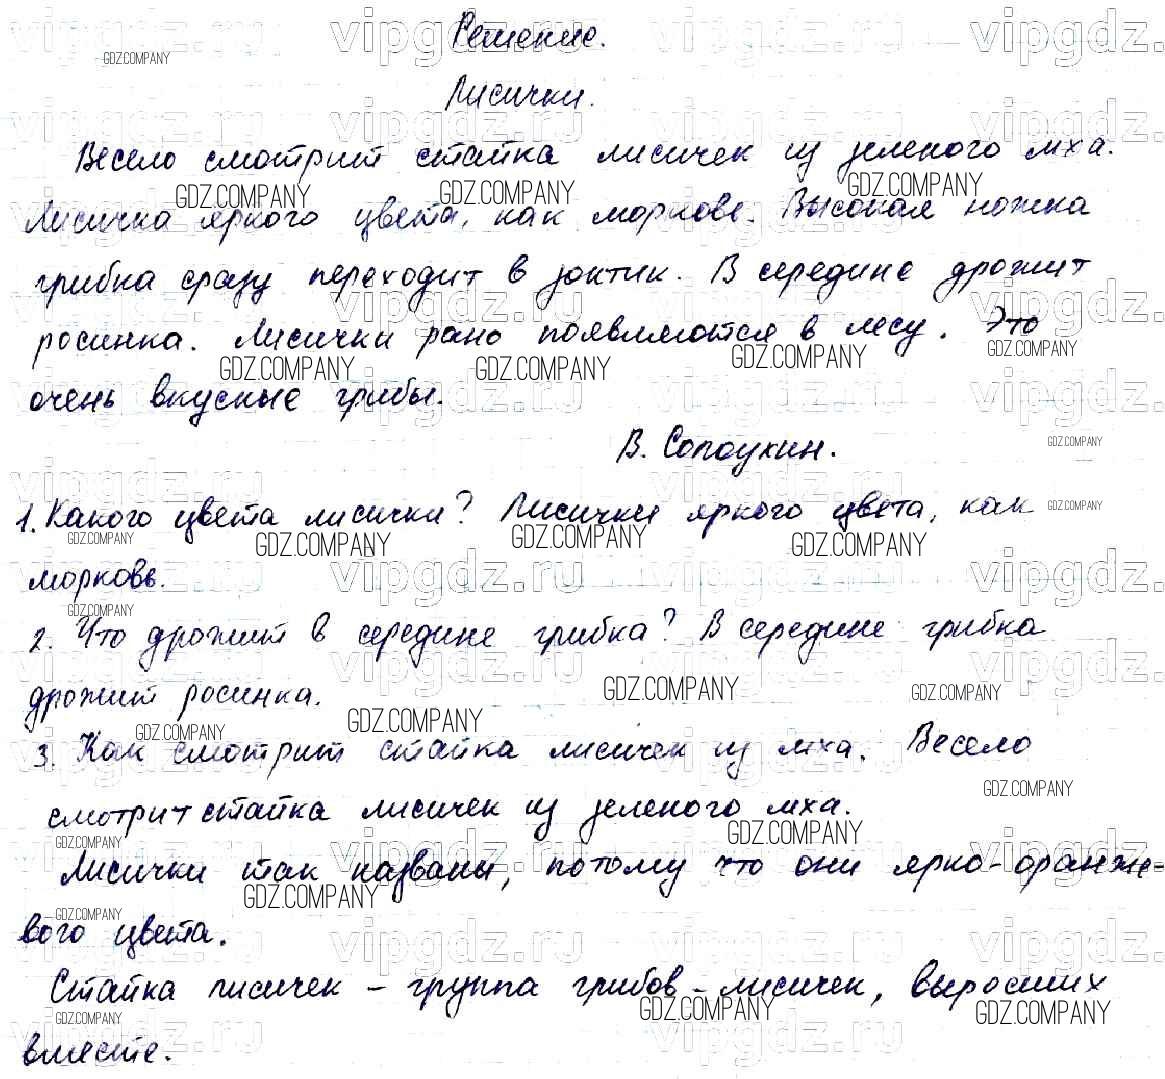 Решение.
Лисички.
Весело смотрит стайка лисичек из зеленого мха.
Лисичка яркого цвета, как морковь. Высокая ножка
грибка сразу переходит в зонтик. В середине дрожит
росинка. Лисички рано появляются в лесу. Это
очень вкусные грибы.
В. Солоухин.
1. Какого цвета лисички? Лисички яркого цвета, как
морковь.
2. Что дрожит в середине грибка? В середине грибка
дрожит росинка.
3. Как смотрит стайка лисичек из мха. Весело
смотрит стайка лисичек из зеленого мха.
Лисички так названы, потому что они ярко-оранже-
вого цвета.
Стайка лисичек - группа грибов-лисичек, выросших
вместе.
vipgdz.ru
GDZ.COMPANY